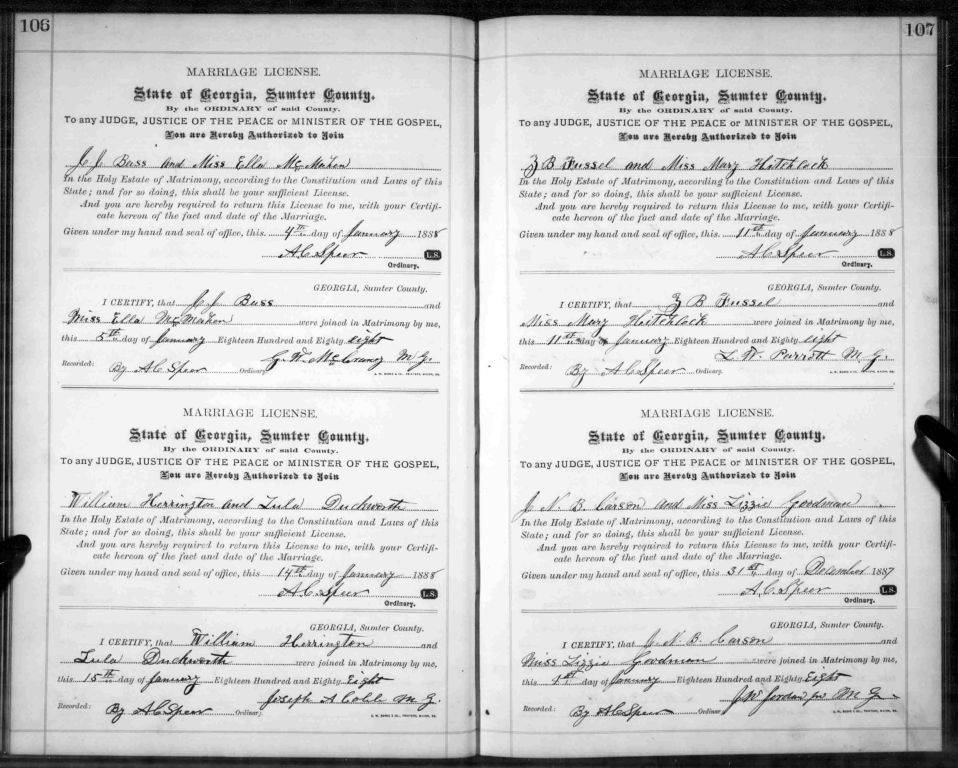 106
MARRIAGE LICENSE.
State of Georgia, Sumter County.
By the ORDINARY of said County.
To any JUDGE, JUSTICE OF THE PEACE or MINISTER OF THE GOSPEL,
You are Hereby Authorized to Join
C J Bass and Miss Ella McMahen
In the Holy Estate of Matrimony, according to the Constitution and Laws of this
State; and for so doing, this shall be your sufficient License.
And you are hereby required to return this License to me, with your Certifi-
cate hereon of the fact and date of the Marriage.
Given under my hand and seal of office, this 4th day of January 1888
A.C. Speer L.S.
Ordinary.
GEORGIA, Sumter County.
I CERTIFY, that C J Bass and
Miss Ella McMahen were joined in Matrimony by me,
this 5th day of January Eighteen Hundred and Eighty eight
G. W. McCraney M. G.
Recorded: By A C Speer Ordinary.
MARRIAGE LICENSE.
State of Georgia, Sumter County.
By the ORDINARY of said County.
To any JUDGE, JUSTICE OF THE PEACE or MINISTER OF THE GOSPEL,
You are Hereby Authorized to Join
William Herrington and Lula Duckworth
In the Holy Estate of Matrimony, according to the Constitution and Laws of this
State; and for so doing, this shall be your sufficient License.
And you are hereby required to return this License to me, with your Certifi-
cate hereon of the fact and date of the Marriage.
Given under my hand and seal of office, this 14th day of January 1888
A.C. Speer L.S.
Ordinary.
GEORGIA, Sumter County.
I CERTIFY, that William Herrington and
Lula Duckworth were joined in Matrimony by me,
this 15th day of January Eighteen Hundred and Eighty Eight
Joseph A Cobb M G.
Recorded: By A C Speer Ordinary.
107
MARRIAGE LICENSE.
State of Georgia, Sumter County.
By the ORDINARY of said County.
To any JUDGE, JUSTICE OF THE PEACE or MINISTER OF THE GOSPEL,
You are Hereby Authorized to Join
Z B Fussel and Miss Mary Hotchlock
In the Holy Estate of Matrimony, according to the Constitution and Laws of this
State; and for so doing, this shall be your sufficient License.
And you are hereby required to return this License to me, with your Certifi-
cate hereon of the fact and date of the Marriage.
Given under my hand and seal of office, this 11th day of January 1888
A C Speer L.S.
Ordinary.
GEORGIA, Sumter County.
I CERTIFY, that Z B Fussel and
Miss Mary Hotchlock were joined in Matrimony by me,
this 11th day of January Eighteen Hundred and Eighty eight
L. W. Parrott M. G.
Recorded: By A C Speer Ordinary.
MARRIAGE LICENSE.
State of Georgia, Sumter County.
By the ORDINARY of said County.
To any JUDGE, JUSTICE OF THE PEACE or MINISTER OF THE GOSPEL,
You are Hereby Authorized to Join
J. N. B. Carson and Miss Lizzie Goodman
In the Holy Estate of Matrimony, according to the Constitution and Laws of this
State; and for so doing, this shall be your sufficient License.
And you are hereby required to return this License to me, with your Certifi-
cate hereon of the fact and date of the Marriage.
Given under my hand and seal of office, this 31st day of December 1887
A. C. Speer L.S.
Ordinary.
GEORGIA, Sumter County.
I CERTIFY, that J. N. B. Carson and
Miss Lizzie Goodman were joined in Matrimony by me,
this 1st day of January Eighteen Hundred and Eighty Eight
J W Jordan jr M G
Recorded: By A C Speer Ordinar